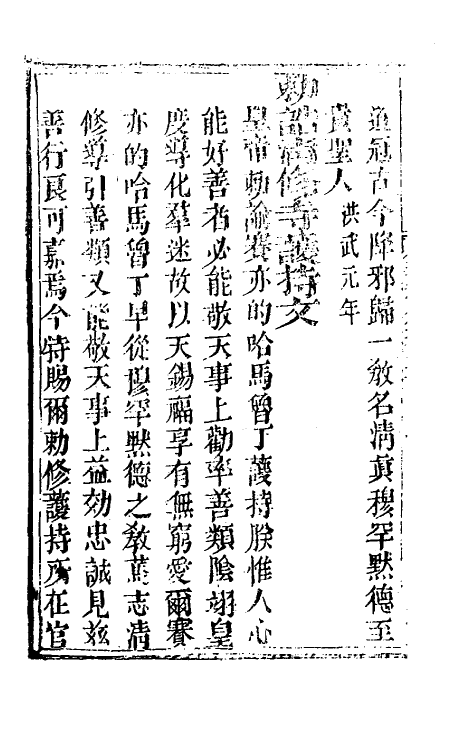 道冠古今降邪歸一敎名清真穆罕默德至
貴聖人 洪武元年
勅諭清修寺護持文
皇帝勅諭賽亦的哈馬魯丁護持朕惟人心
能好善者必能敬天事上勸率善類陰翊皇
度導化羣迷故以天錫福享有無窮愛爾賽
亦的哈馬魯丁早從穆罕默德之敎篤志清
修導引善類又能敬天事上益効忠誠見玆
善行良可嘉焉今特賜爾勅修護持所在官